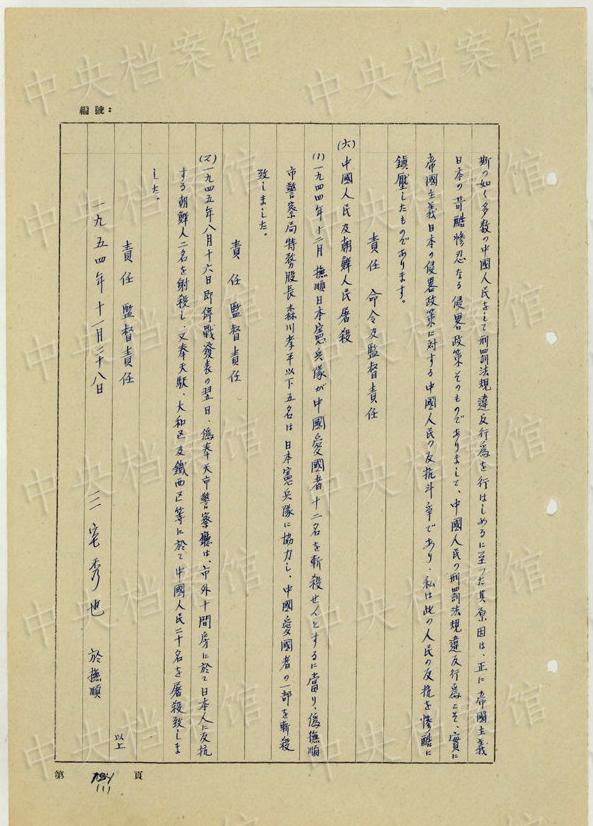 編號：
斯の如く多数の中國人民をして刑罰法規違反行爲を行はしめるに至った其原因は、正に帝國主義
日本の苛酷惨忍なる侵畧政策そのものでありまして、中國人民の刑罰法規違反行爲こそ、實に
帝國主義日本の侵畧政策に対する中國人民の反抗斗争であり、私は此の人民の反抗を惨酷に
鎮壓したものであります。
責任 命令及監督責任
(六) 中國人民及朝鮮人民屠殺
(1) 一九四四年十二月 撫順日本憲兵隊が中國愛國者十二名を斬殺せんとするに當り、偽撫順
市警察局特務股長森川孝平以下五名は日本憲兵隊に協力し、中國愛國者の一部を斬殺
致しました。
責任 監督責任
(2) 一九四五年八月十六日即停戰發表の翌日 偽奉天市警察廳は、市外十間房に於て日本人に反抗
する朝鮮人二名を射殺し、又奉天駅、大和区及鐵西区等に於て中國人民二十名を屠殺致しま
した。
責任 監督責任
以上
一九五四年十一月二十八日 三宅秀也 於撫順
第 頁
111
中央档案馆